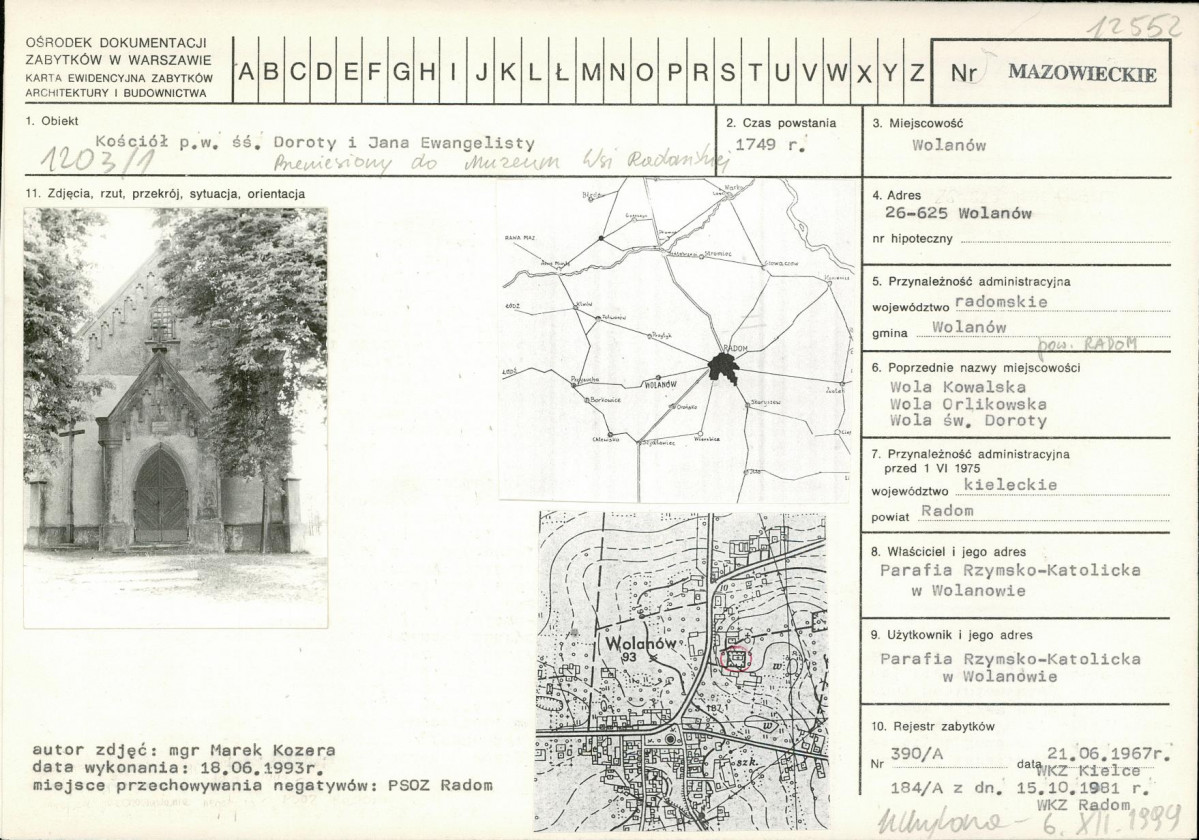 12552
OŚRODEK DOKUMENTACJI
ZABYTKÓW W WARSZAWIE
KARTA EWIDENCYJNA ZABYTKÓW
ARCHITEKTURY I BUDOWNICTWA
A B C D E F G H I J K L Ł M N O P R S T U V W X Y Z
Nr MAZOWIECKIE
1. Obiekt
Kościół p.w. śś. Doroty i Jana Ewangelisty
1203/1 Przeniesiony do Muzeum Wsi Radomskiej
2. Czas powstania
1749 r.
3. Miejscowość
Wolanów
11. Zdjęcia, rzut, przekrój, sytuacja, orientacja
4. Adres
26-625 Wolanów
nr hipoteczny
5. Przynależność administracyjna
województwo radomskie
gmina Wolanów
pow. RADOM
6. Poprzednie nazwy miejscowości
Wola Kowalska
Wola Orlikowska
Wola św. Doroty
7. Przynależność administracyjna
przed 1 VI 1975
województwo kieleckie
powiat Radom
8. Właściciel i jego adres
Parafia Rzymsko-Katolicka
w Wolanowie
9. Użytkownik i jego adres
Parafia Rzymsko-Katolicka
w Wolanowie
10. Rejestr zabytków
Nr 390/A data 21.06.1967r.
WKZ Kielce
184/A z dn. 15.10.1981 r.
WKZ Radom
6. XII. 1994
RAWA MAZ
ŁÓDŹ
RADOM
ŁÓDŹ
WOLANÓW
Borkowice
Wolanów
93
187,1
w
w
szk.
autor zdjęć: mgr Marek Kozera
data wykonania: 18.06.1993r.
miejsce przechowywania negatywów: PSOZ Radom